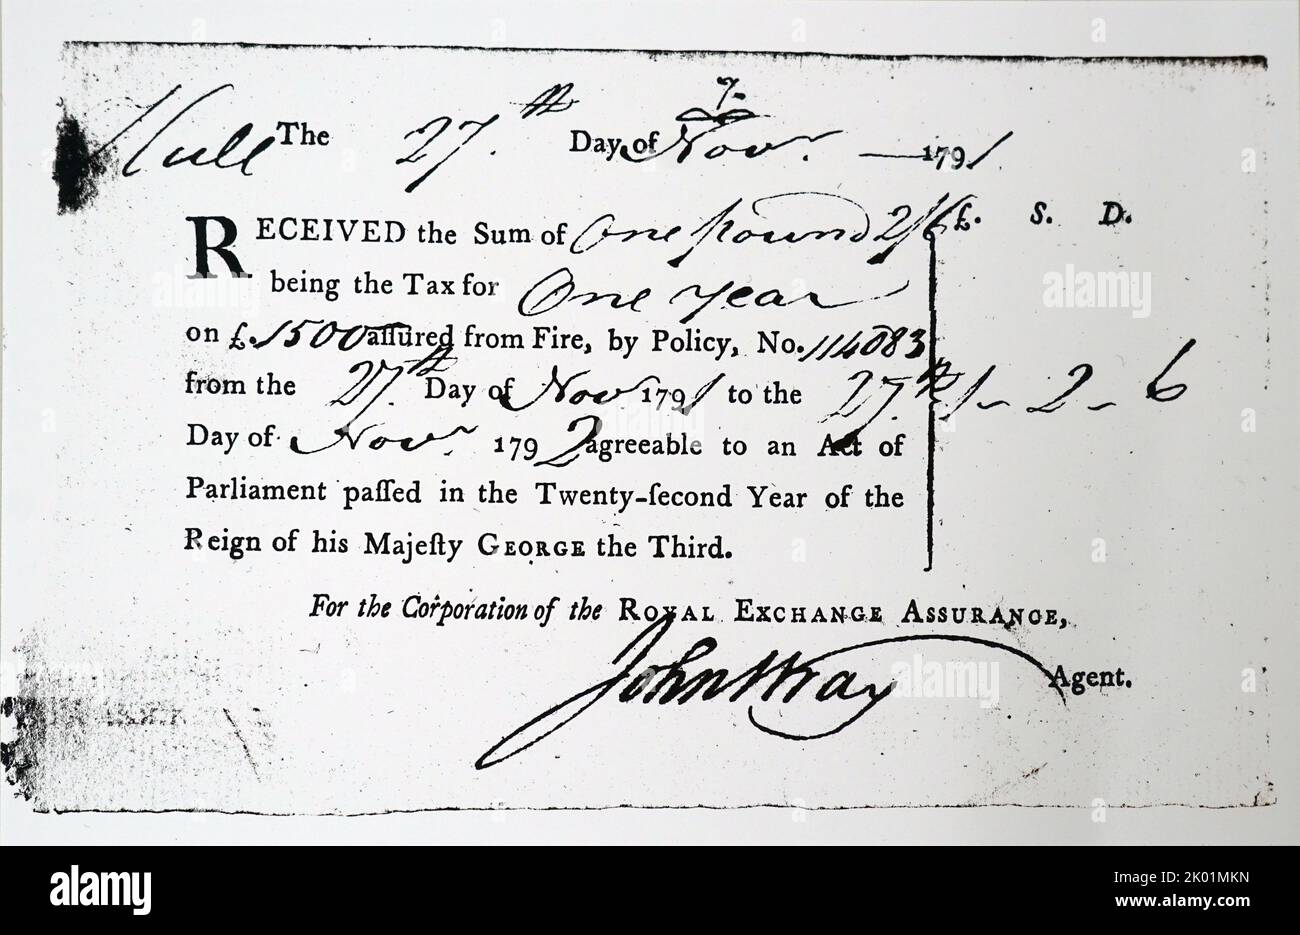 7.
Hull The 27.th Day of Novr. — 1791.
RECEIVED the Sum of One pound 2/6 £. S. D.
being the Tax for One year
on £.1500 aſſured from Fire, by Policy, No. 114083
from the 27.th Day of Novr 1791 to the 27.th 1 - 2 - 6
Day of Novr. 1792 agreeable to an Act of
Parliament paſſed in the Twenty-ſecond Year of the
Reign of his Majeſty GEORGE the Third.
For the Corporation of the ROYAL EXCHANGE ASSURANCE,
John Wray Agent.
alamy
alamy
alamy
alamy
alamy
Image ID: 2K01MKN
www.alamy.com